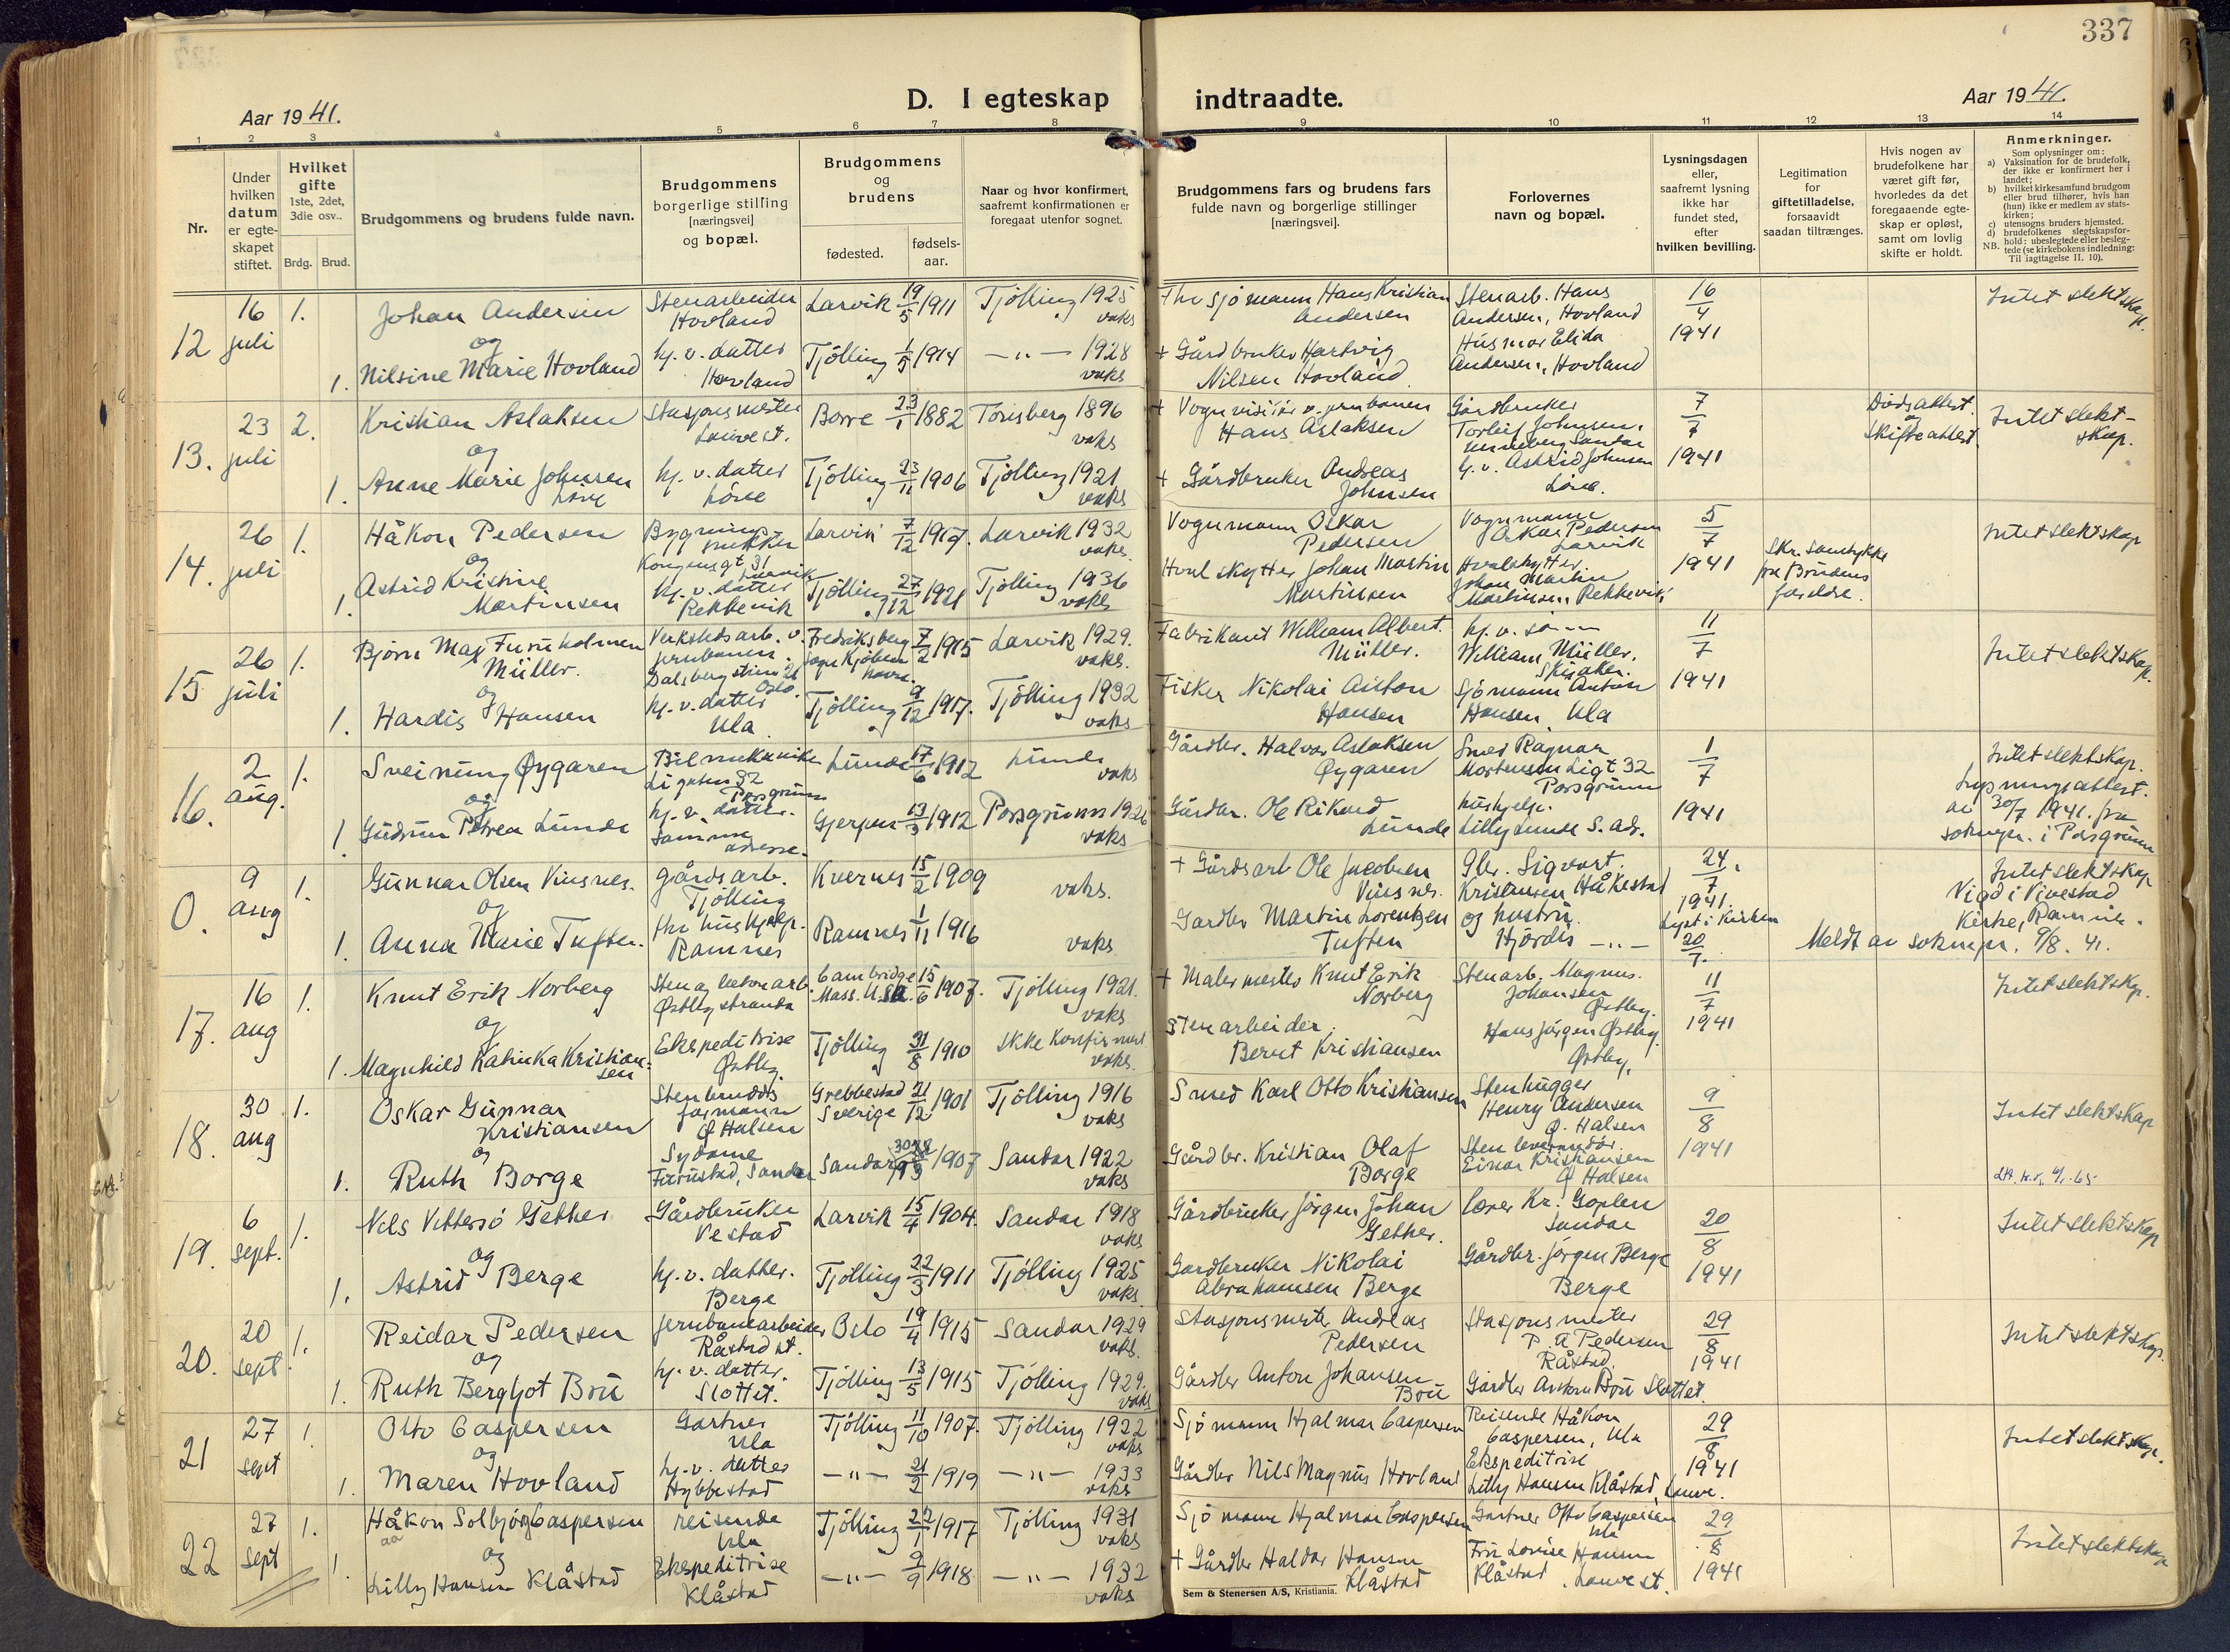 337
Aar 1941.
D. I egteskap
indtraadte.
Aar 1941.
1 2 3 4 5 6 7 8 9 10 11 12 13 14
Nr.
Under hvilken datum er egteskapet stiftet.
Hvilket gifte 1ste, 2det, 3die osv..
Brdg. Brud.
Brudgommens og brudens fulde navn.
Brudgommens borgerlige stilling [næringsvei] og bopæl.
Brudgommens og brudens
fødested. fødselsaar.
Naar og hvor konfirmert, saafremt konfirmationen er foregaat utenfor sognet.
Brudgommens fars og brudens fars fulde navn og borgerlige stillinger [næringsvei].
Forlovernes navn og bopæl.
Lysningsdagen eller, saafremt lysning ikke har fundet sted, efter hvilken bevilling.
Legitimation for giftetilladelse, forsaavidt saadan tiltrænges.
Hvis nogen av brudefolkene har været gift før, hvorledes da det foregaaende egteskap er opløst, samt om lovlig skifte er holdt.
Anmerkninger.
Som oplysninger om:
a) Vaksination for de brudefolk, der ikke er konfirmert her i landet;
b) hvilket kirkesamfund brudgom eller brud tilhører, hvis han (hun) ikke er medlem av statskirken;
c) utensogns bruders hjemsted.
d) brudefolkenes slegtskapsforhold: ubeslegtede eller beslegtede (se kirkebokens indledning:
NB. Til iagttagelse II. 10).
12 16 juli 1. Johan Andersen Stenarbeider Hovland Larvik 19/5 1911 Tjølling 1925 vaks
Sjömann Hans Kristian Andersen Stenarb. Hans Andersen, Hovland 16/4 1941 Intet slektskap.
og
1. Nilsine Marie Hovland hj. v. datter Hovland Tjølling 1/5 1914 —"— 1928 vaks
+ Gårdbruker Hartvig Nilsen Hovland Husmor Elida Andersen, Hovland
13. 23 juli 2. Kristian Aslaksen Stasjonsmester Lauve st. Borre 23/1 1882 Tönsberg 1896 vaks
+ Vognvisitör v. jernbanen Hans Aslaksen Gårdbruker Torleif Johnsen, Sandar 7/7 1941 Dödsattest og Skifteattest Intet slektskap.
og
1. Anne Marie Johnsen hj. v. datter Tjölling 23/11 1906 Tjölling 1921 vaks
+ Gårdbruker Andreas Johnsen hj. v. Astrid Johnsen
14. 26 juli 1. Håkon Pedersen Kongensgt 31 Larvik Larvik 7/12 1907. Larvik 1932 vaks
Vognmann Oskar Pedersen Vognmann Oskar Pedersen Larvik 5/7 1941 Intet slektskap
og
1. Astrid Kristine Martinsen hj. v. datter Rekkevik Tjölling 27/12 1921 Tjölling 1936 vaks
Hvalskytter Johan Martin Martinsen Hvalskytter Johan Martin Martinsen Rekkevik Skr. samtykke fra Brudens foreldre.
15 26 juli 1. Bjørn Max Furuholmen Müller. Verkstedsarb. v. jernbanen. Oslo. Fredriksberg sogn Kjöbenhavn. 7/2 1915 Larvik 1929. vaks.
Fabrikant William Albert Müller. William Müller, 11/7 1941 Intet slektskap.
og
1. Hardis Hansen hj. v. datter Ula Tjölling 9/12 1917. Tjölling 1932 vaks
Fisker Nikolai Anton Hansen Sjömann Anton Hansen, Ula
16. 2 aug. 1. Sveinung Øygaren Bilmekaniker Ligaten 32 Porsgrunn Lunde 17/6 1912 Lunde vaks
Gårdbr. Halvor Aslaksen Øygaren Smed Ragnar Mortensen Ligt 32 Porsgrunn 1/7 1941 Intet slektskap. Lysningsattest. av 30/7 1941. fra sokneprs. i Porsgrunn
og
1 Gudrun Petrea Lunde hj. v. datter. Samme adresse. Gjerpen 13/3 1912 Porsgrunn 1926 vaks
Gårdbr. Ole Rikard Lunde hushjelp. Lilly Lunde S. adr.
0. 9 aug 1. Gunnar Olsen Vinsnes. gårdsarb. Tjölling Kvernes 15/2 1909 vaks.
+ Gårdsarb Ole Jacobsen Vinsnes. Gbr. Sigvart Kristensen Håkestad 24/7 1941. Intet slektskap Vigd i Vivestad Kirke, Ramnes.
og
1. Anna Marie Tuften. Ramnes Ramnes 1/11 1916 vaks
Gardbr Martin Lorentzen Tuften og hustru. Hjördis —"— Lyst i Kirken 20/7. Meldt av soknepr. 9/8. 41.
17. 16 aug 1. Knut Erik Norberg Sten og betonarb. Østbystranda Cambridge Mass. U.S.A. 15/6 1907. Tjölling 1921. vaks
+ Malermester Knut Erik Norberg Stenarb. Magnus Johansen Østby. 11/7 1941 Intet slektskap.
og
1. Magnhild Katinka Kristiansen Ekspeditrise Østby. Tjölling 31/8 1910 ikke konfirmert vaks.
Stenarbeider. Bernt Kristiansen Hans Jörgen Østby. Østby.
18. 30 aug 1. Oskar Gunnar Kristiansen Stenbrudds formann Ø Halsen Grebbestad Sverige 21/12 1901 Tjölling 1916 vaks
Smed Karl Otto Kristiansen Stenhugger Henry Andersen Ø. Halsen 9/8 1941 Intet slektskap
og
1. Ruth Borge Sydame Furustad, Sandar Sandar 1907 Sandar 1922 vaks
Gårdbr. Kristian Olaf Borge Stenleverandör. Einar Kristiansen Ø Halsen
19. 6 sept. 1. Nils Vittersö Gether Gårdbruker Vestad Larvik 15/4 1904. Sandar 1918 vaks
Gårdbruker Jörgen Johan Gether. lærer Kr. Goplen Sandar 20/8 1941 Intet slektskap
og
1. Astrid Berge hj. v. datter. Berge Tjölling 22/3 1911 Tjölling 1925 vaks
Gardbruker Nikolai Abrahamsen Berge Gårdbr. Jörgen Berge Berge
20. 20 sept. 1. Reidar Pedersen Jernbanearbeider Råstad st. Oslo 19/4 1915 Sandar 1929 vaks.
Stasjonsmester Andreas Pedersen Stasjonsmester P. A Pedersen Råstad. 29/8 1941 Intet slektskap.
og
1. Ruth Bergljot Bru hj. v. datter. Slottet. Tjölling 13/5 1915 Tjölling 1929. vaks
Gårdbr Anton Johansen Bru Gårdbr Anton Bru Slottet.
21 27 sept 1. Otto Caspersen Gartner Ula Tjölling 11/10 1907. Tjölling 1922 vaks
Sjömann Hjalmar Caspersen Reisende Håkon Caspersen, Ula 29/8 1941 Intet slektskap.
og
1. Maren Hovland hj. v. datter Hybbestad —"— 21/2 1919 —"— 1933 vaks
Gårdbr Nils Magnus Hovland Ekspeditrise Lilly Hansen Klåstad, Lauve.
22 27 sept 1. Håkon Solbjörg Caspersen reisende Ula Tjölling 22/1 1917 Tjölling 1931 vaks
Sjömann Hjalmar Caspersen Gartner Otto Caspersen Ula 29/8 1941 Intet slektskap
og
1. Lilly Hansen Klåstad Ekspeditrise Klåstad —"— 9/9 1918 —"— 1932 vaks
+ Gårdbr Haldor Hansen Klåstad Fru Lovise Hansen Klåstad, Lauve st.
Sem & Stenersen A/S, Kristiania.